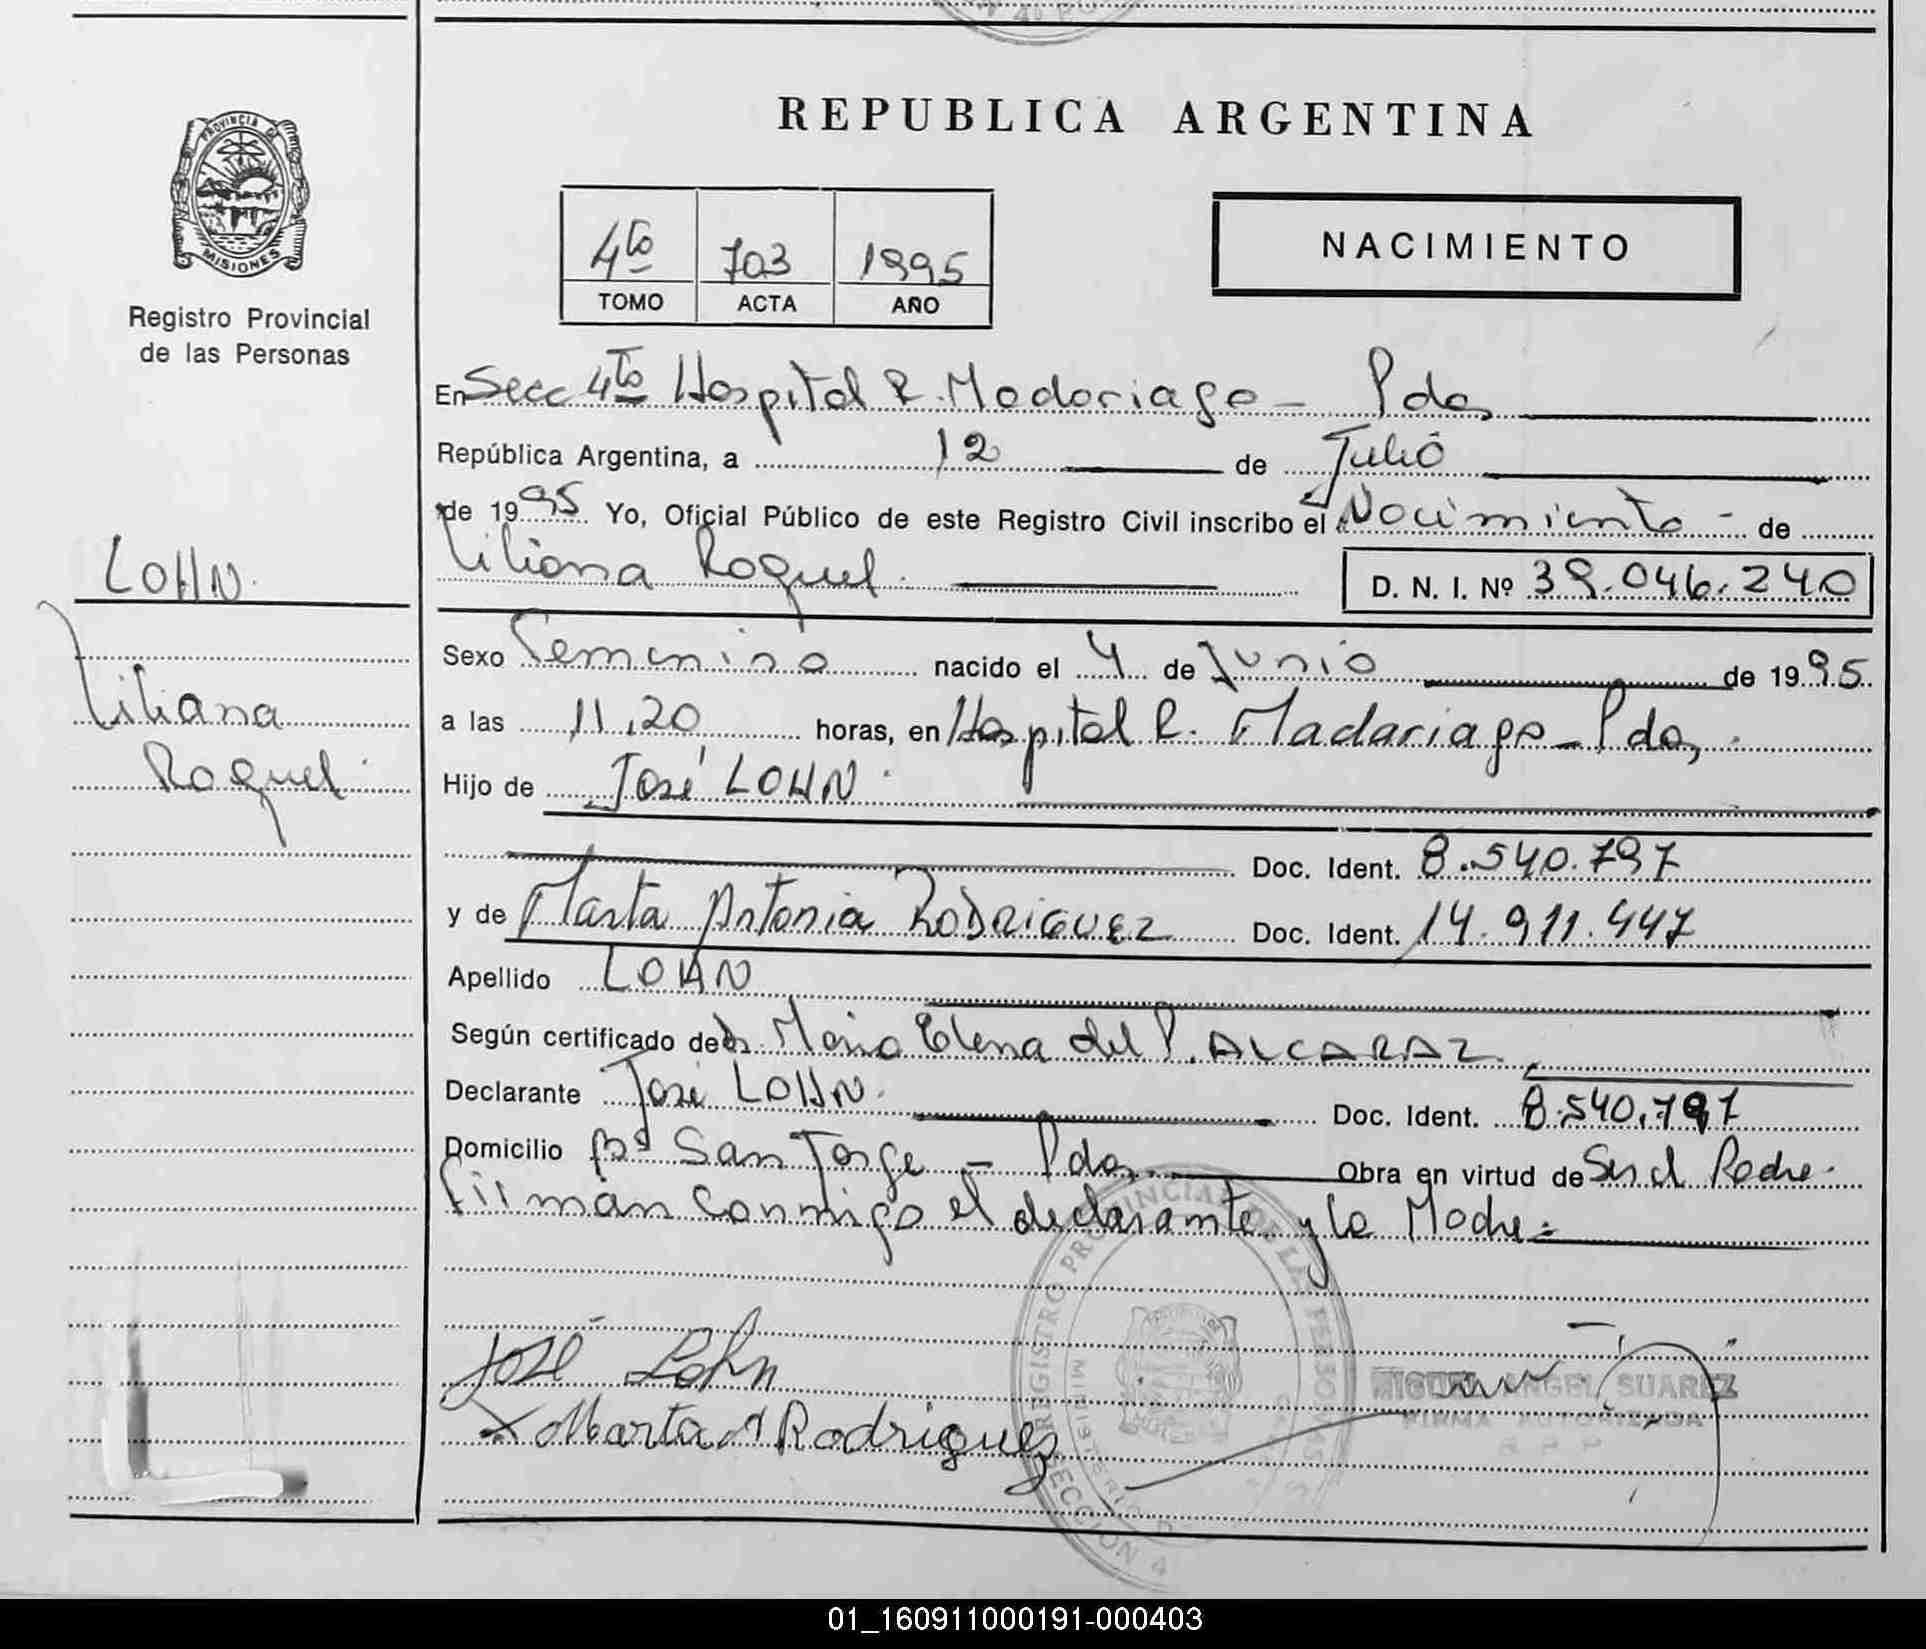 REPUBLICA ARGENTINA
PROVINCIA DE
MISIONES
Registro Provincial
de las Personas
4to 703 1995
TOMO ACTA AÑO
NACIMIENTO
En Secc 4to Hospital R. Madariaga - Pdas
República Argentina, a 12 de Julio
de 1995 Yo, Oficial Público de este Registro Civil inscribo el Nacimiento - de
Liliana Raquel. D. N. I. Nº 39.046.240
LOHN.
Liliana
Raquel.
Sexo Femenino nacido el 4 de Junio de 1995
a las 11,20 horas, en Hospital R. Madariaga - Pdas.
Hijo de José LOHN.
Doc. Ident. 8.540.797
y de Marta Antonia RODRIGUEZ Doc. Ident. 14.911.447
Apellido LOHN
Según certificado de María Elena del P. ALCARAZ
Declarante José LOHN. Doc. Ident. 8.540.797
Domicilio Bº San Jorge - Pdas. Obra en virtud de Ser el Padre.
Firman conmigo el declarante y la Madre.
José Lohn
x Marta A Rodriguez
REGISTRO PROVINCIAL DE LAS PERSONAS
SECCION 4
MIGUEL ANGEL SUAREZ
FIRMA AUTORIZADA
01_160911000191-000403